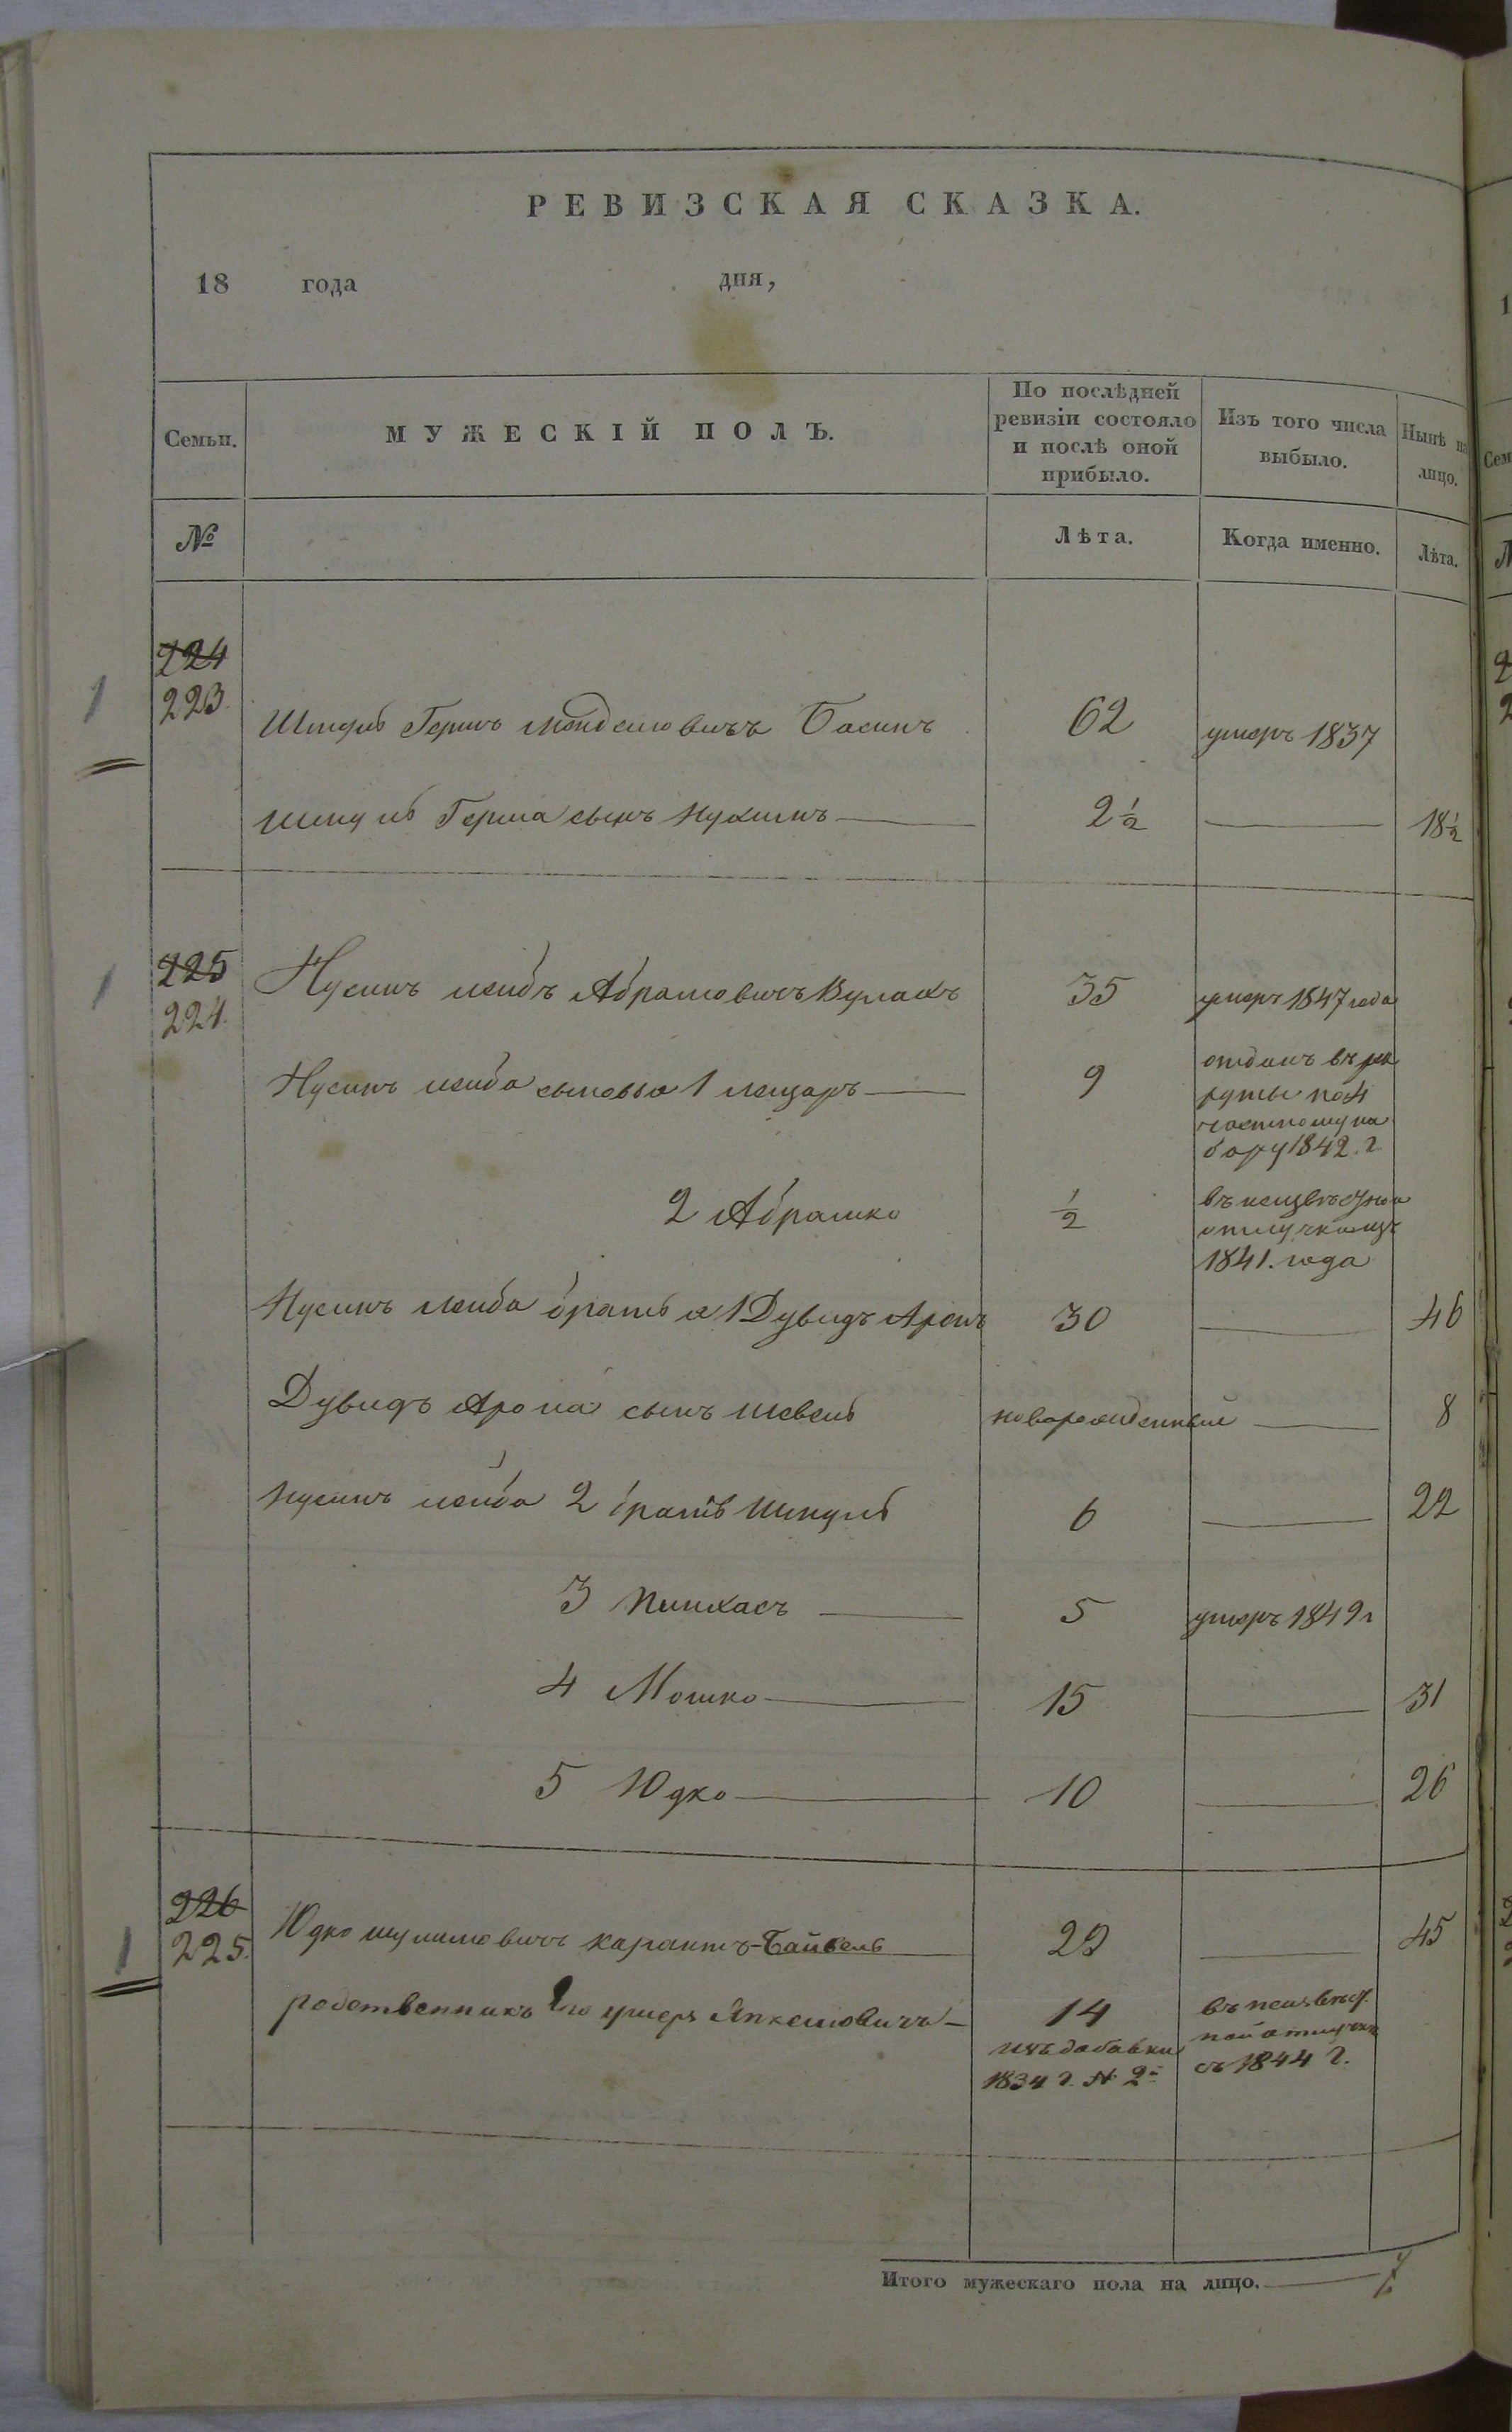 РЕВИЗСКАЯ СКАЗКА.
18 года дня,
Семьи. МУЖЕСКІЙ ПОЛЪ. По послѣдней ревизіи состояло и послѣ оной прибыло. Изъ того числа выбыло. Нынѣ на лицо.
№ Лѣта. Когда именно. Лѣта.
224
223. Шмуль Гершъ Менделовичъ Басинъ 62 умеръ 1837
Шмуль Герша сынъ Нухимъ 2½ 18½
225
224. Нусинъ Лейбъ Абрамовичъ Вулахъ 35 умеръ 1847 года
Нусинъ Лейба сыновья 1 Лейзаръ 9 отданъ въ ре
круты по 4
частному на
бору 1842. г
2 Абрамко ½ въ неизвѣстной
отлучкѣ изъ
1841. года
Нусинъ Лейба братья 1 Дувидъ Аронъ 30 46
Дувидъ Арона сынъ Шевель новорожденный 8
Нусинъ Лейба 2 братъ Шмуль 6 22
3 Пинхасъ 5 умеръ 1849 г
4 Мошко 15 31
5 Юдко 10 26
226
225. Юдко Шулимовичъ Карантъ-Байвель 29 45
родственникъ его Янкелювичъ 14 въ неизвѣст
ной отлучкѣ
съ 1844 г.
изъ добавки
1834 г. № 2й
Итого мужескаго пола на лицо. 7